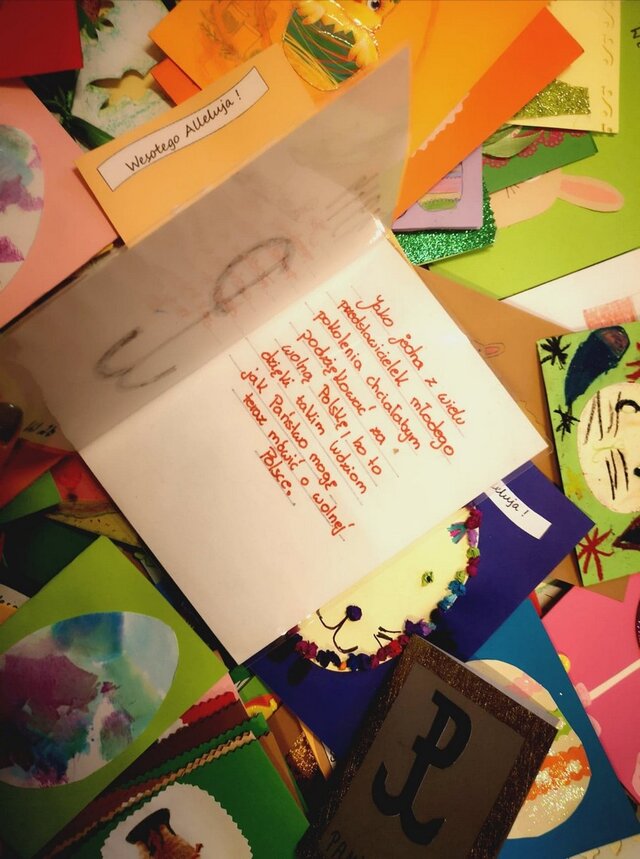 Wesołego Alleluja !
Jako jedna z wielu
przedstawicielek młodego
pokolenia chciałabym
podziękować za
wolną Polskę! bo to
dzięki takim ludziom
jak Państwo mogę
teraz mówić o wolnej
Polsce.
eluja !